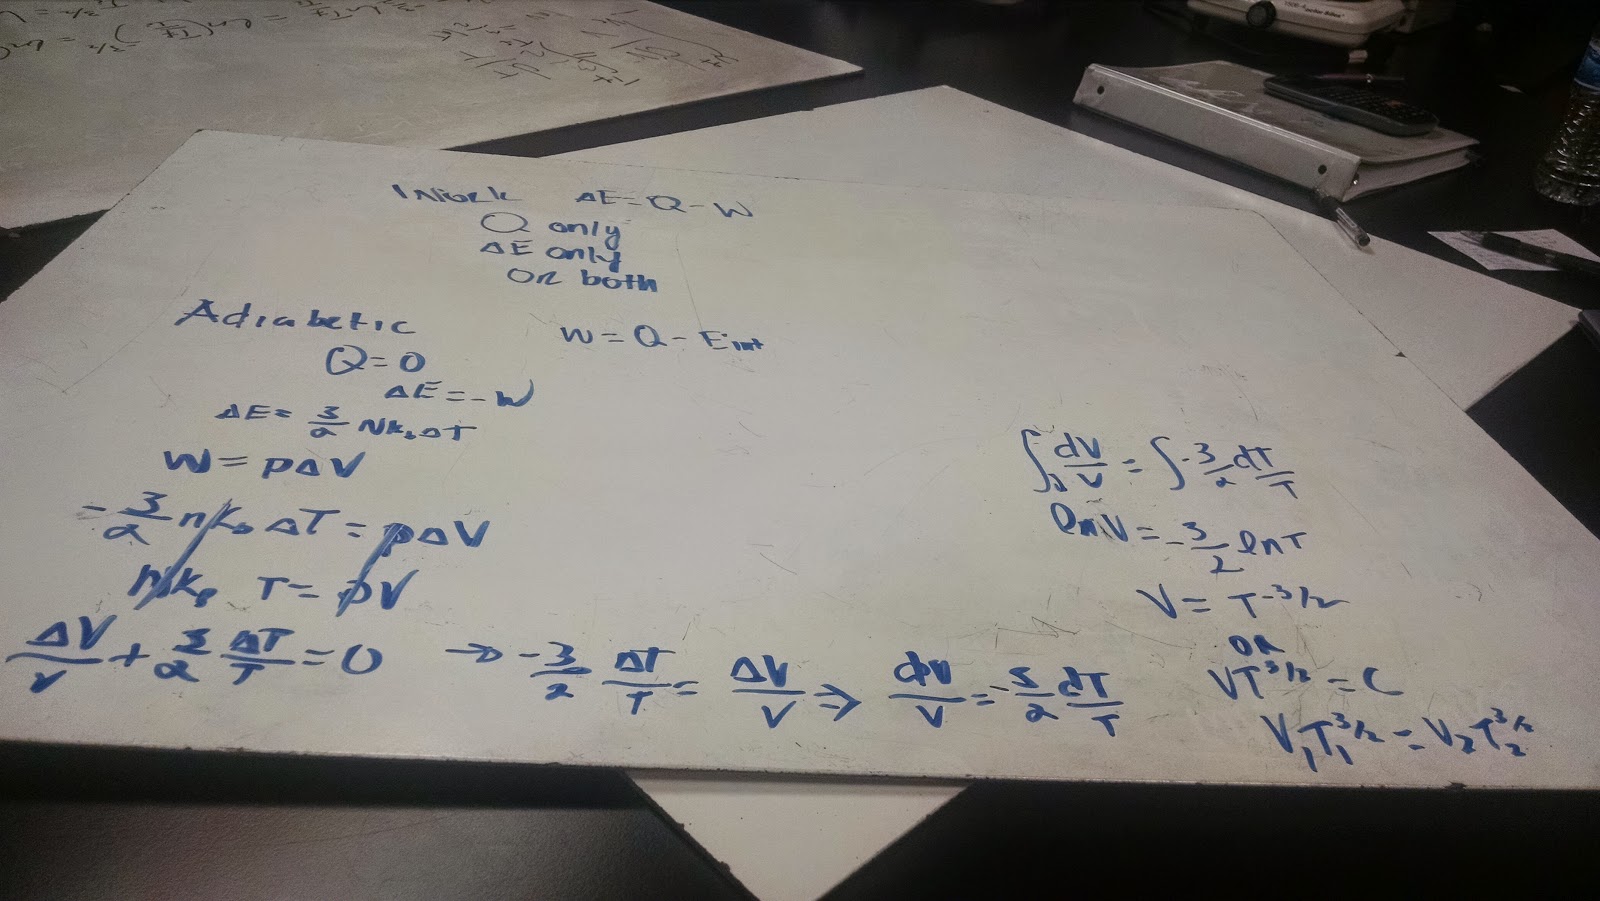 Work ΔE = Q - W
Q only
ΔE only
OR both
Adiabetic
W = Q - Eint
Q = 0
ΔE = -W
ΔE = 3/2 Nk_b ΔT
W = pΔV
-3/2 nk_b ΔT = pΔV
nk_b T = pV
ΔV/V + 3/2 ΔT/T = 0 → -3/2 ΔT/T = ΔV/V ⇒ dV/V = -3/2 dT/T
∫ dV/V = ∫ -3/2 dT/T
ln V = -3/2 ln T
V = T^-3/2
OR
VT^3/2 = C
V₁T₁^3/2 = V₂T₂^3/2